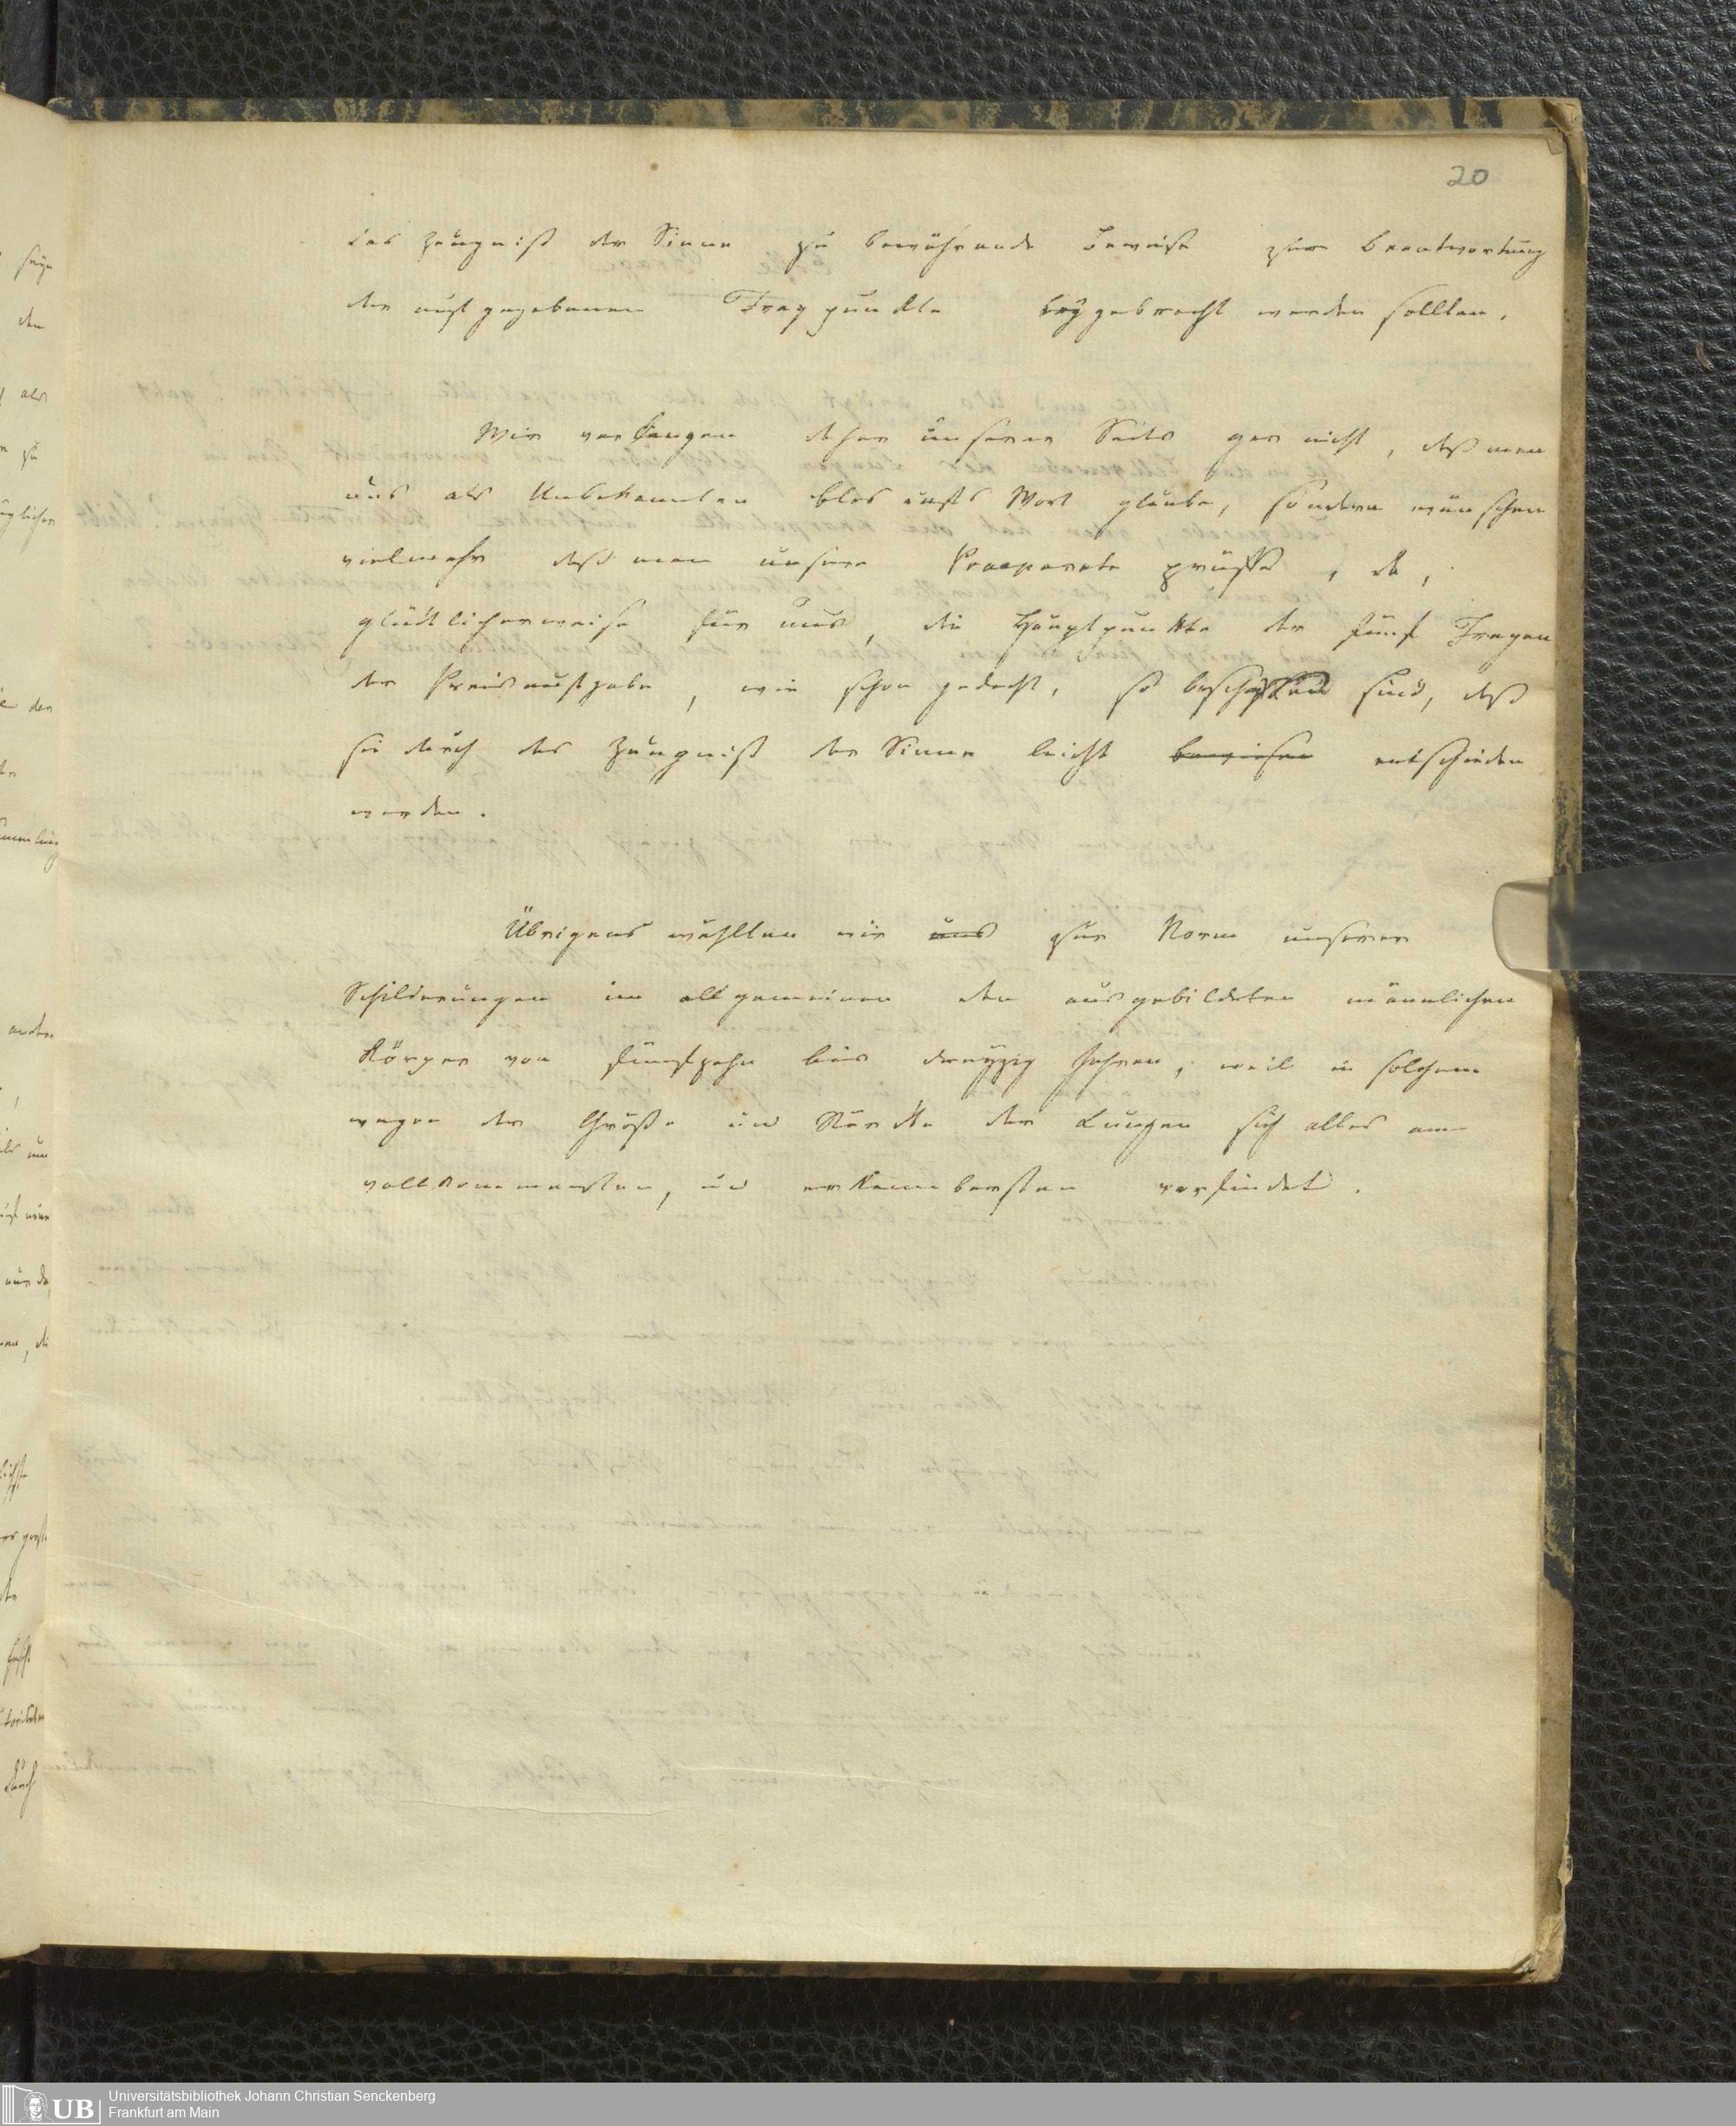 20
das Zeügniß der Sinne zu bewährende Beweise zur Beantwortung
der aufgegebenen Fragpunckte beÿgebracht werden sollten.
Wir verlangen daher unserer Seits gar nicht, daß man
uns als Unbekannten blos aufs Wort glaube, sondern wünschen
vielmehr daß man unsere Praeparate prüffe, da,
glücklicherweise für uns, die Hauptpunkte der fünf Fragen
der Preisaufgabe, wie schon gedacht, so beschaffen sind, daß
sie durch das Zeugniß der Sinne leicht bewiesen entschieden
werden.
Übrigens wählten wir uns zur Norm unserer
Schilderungen im allgemeinen den ausgebildeten männlichen
Körper von funfzehn bis dreyzig Jahren, weil in solchem
wegen der Größe und Stärcke der Lungen sich alles am
vollkommensten, und erkennbarsten vorfindet.
UB
Universitätsbibliothek Johann Christian Senckenberg
Frankfurt am Main